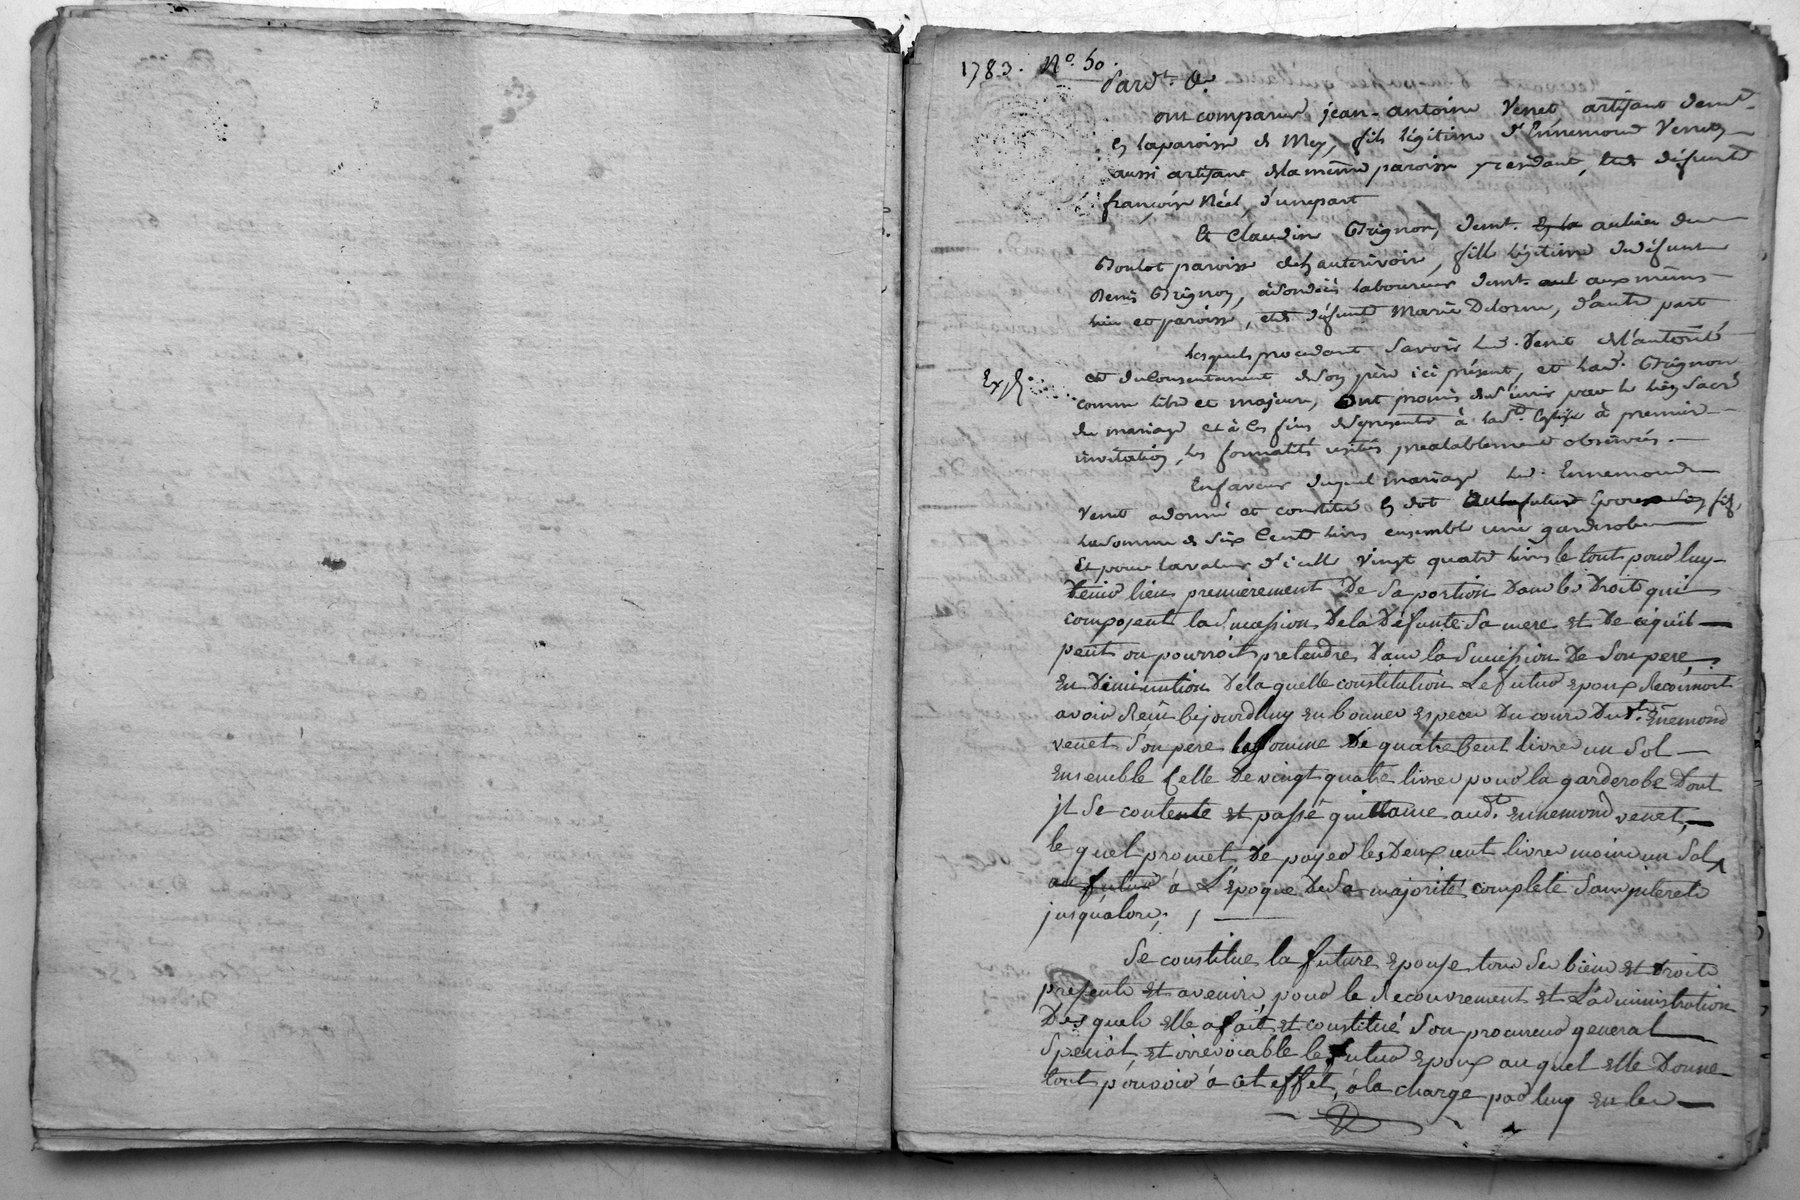 1783. N.o 50.
Pard.t &.
ont comparu jean-antoine Venet artisant demt.
en la paroisse de Mey, fils légitime d'Ennemond Venet
aussi artisant de la même paroisse y residant, et de défunte
françoise Réal, d'une part
Et Claudine Grignon, demt. en la au lieu du
Goulot paroisse d'hauterivoire, fille légitime de défunt
Denis Grignon, laboureur demt. aul aux mêmes
lieu et paroisse, et de défunte Marie Delorme, d'autre part
Lesquels procedant savoir led. Venet de l'autorité
Exp.
et du Consentement de son père ici présent, et lad. Grignon
comme libre et majeure, Ont promis de s'unir par le lien sacré
du mariage et à ces fins de se presenter à la Ste. Eglise à premiere
invitation, les formalités usitées prealablement observées.
En faveur duquel mariage led. Ennemond
Venet a donné et constitué en dot au futur Epoux son fils,
la somme de Six Cents livres ensemble une garderobe
Et pour la valeur d'icelle vingt quatre livres le tout pour luy
tenir lieu premierement De Sa portion Dans les Droits qui
composent la Succession De la Défunte Sa mere et De ce qu'il
peut ou pourroit pretendre Dans la Succession De Son pere,
En Diminution De laquelle constitution Le futur epoux Reconnoit
avoir Reçu cejourdhuy en bonnes especes Du cours Dudt. Eñemond
venet Son pere la Somme De quatre Cent livres un Sol
Ensemble Celle De vingt quatre livres pour la garderobe Dont
jl Se contente et passe quittance audt. ennemond venet,
le quel promet De payer les Deux cent livres moins un Sol
au futur à L'epoque De Sa majorité complete Sans interets
jusqu'alors,
Se constitue la future epouse tous Ses biens et droits
présents et avenirs pour le Recouvrement et L'administration
Desquels elle a fait et constitué Son procureur general
Special et irrevocable le futur epoux au quel elle Donne
tout pouvoir à cet effet, à la charge par luy en les